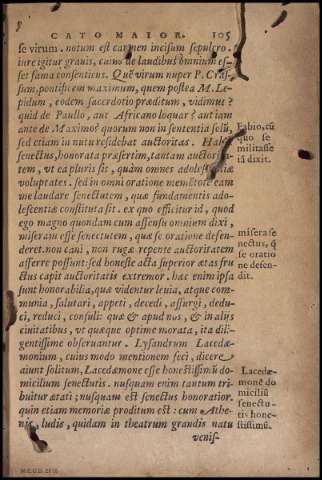 CATO MAIOR. 105
se virum. notum est carmen incisum sepulcro.
iure igitur grauis, cuius de laudibus omnium es-
set fama consentiens. Quē virum nuper P. Cras-
sum, pontificem maximum, quem postea M. Le-
pidum, eodem sacerdotio præditum, vidimus?
quid de Paullo, aut Africano loquar? aut iam
ante de Maximo? quorum non in sententia solū,
sed etiam in nutu residebat auctoritas. Habet
senectus, honorata præsertim, tantam auctorita-
tem, vt ea pluris sit, quàm omnes adolescentiæ
voluptates. sed in omni oratione memētote eam
me laudare senectutem, quæ fundamentis ado-
lescentiæ constituta sit. ex quo efficitur id, quod
ego magno quondam cum assensu omnium dixi,
miseram esse senectutem, quæ se oratione defen-
deret. non cani, non rugæ repente auctoritatem
afferre possunt: sed honeste acta superior ætas fru
ctus capit auctoritatis extremos. hæc enim ipsa
sunt honorabilia, quæ videntur leuia, atque com-
munia, salutari, appeti, decedi, assurgi, dedu-
ci, reduci, consuli: quæ & apud nos, & in aliis
ciuitatibus, vt quæque optime morata, ita dili-
gentissime obseruantur. Lysandrum Lacedæ-
monium, cuius modo mentionem feci, dicere
aiunt solitum, Lacedæmone esse honestissimū do-
micilium senectutis. nusquam enim tantum tri-
buitur ætati; nusquam est senectus honoratior.
quin etiam memoriæ proditum est: cum Athe-
nis, ludis, quidam in theatrum grandis natu
venis-
Fabio, cū
quo se
militasse
iā dixit.
misera se
nectus, q̃
se oratio
ne defen-
dit.
Lacedæ-
mone do
miciliū
senectu-
tis hone-
stissimū.